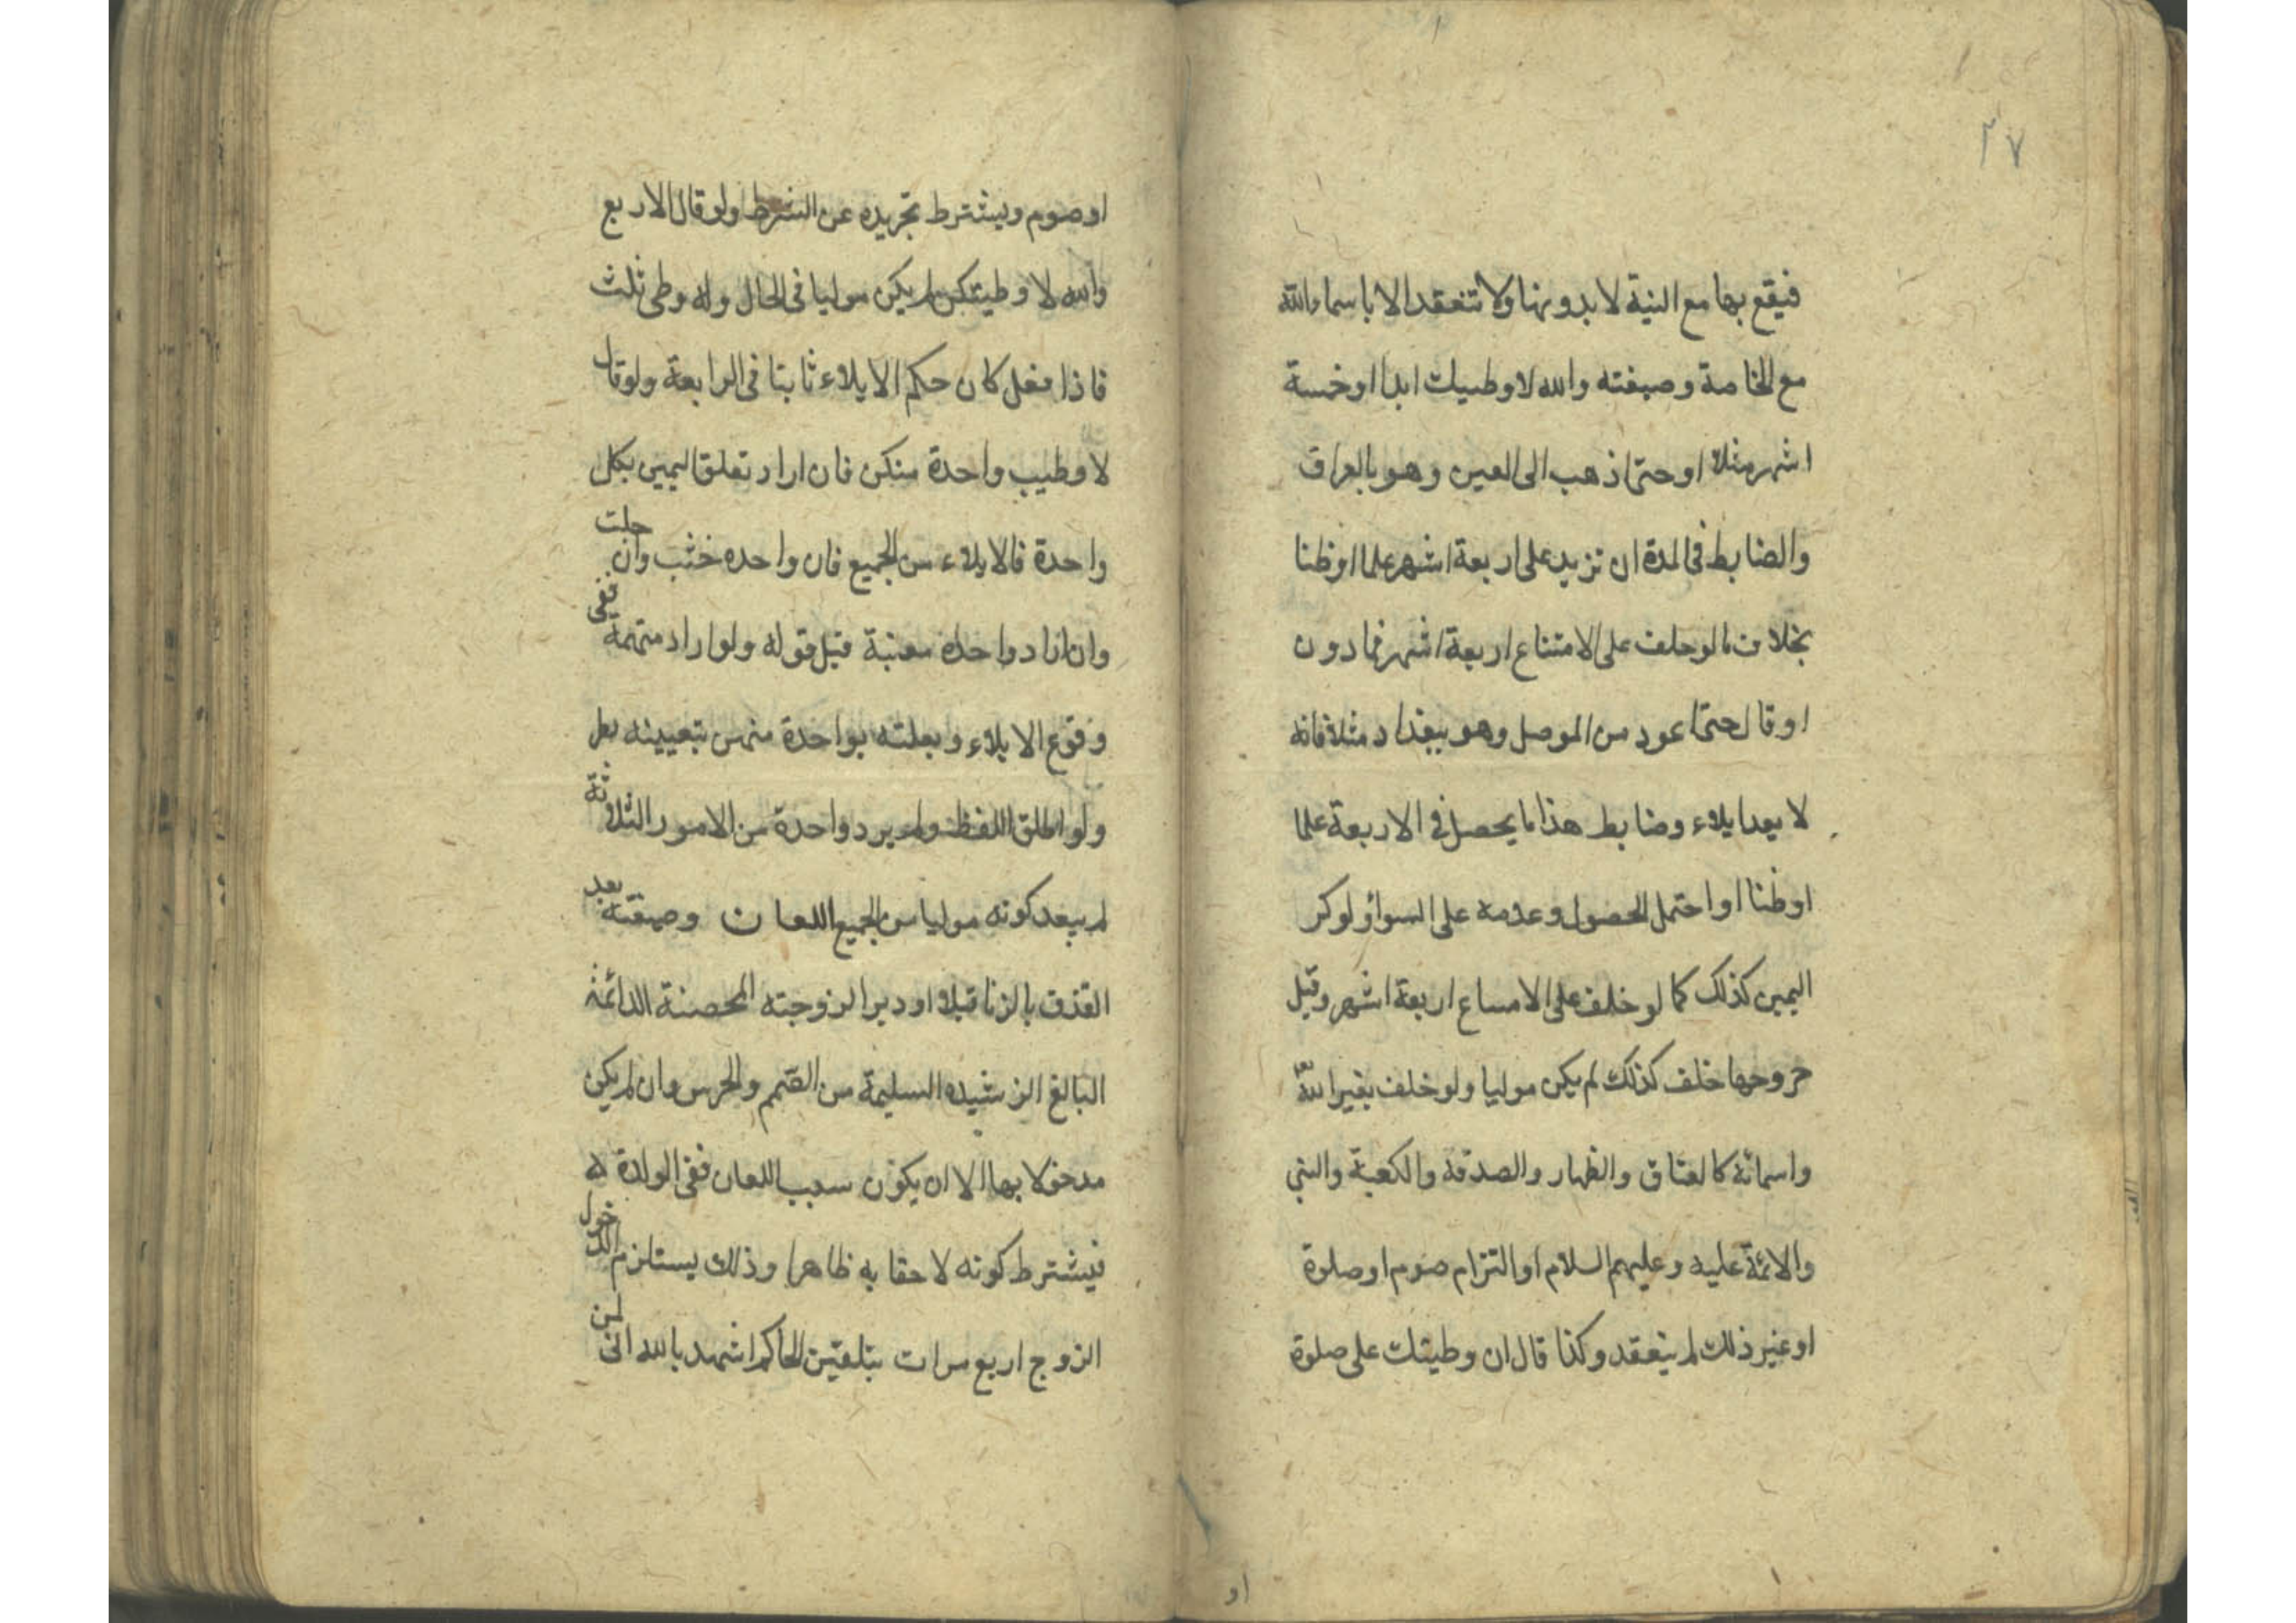 ٣٧
فيقع بها مع النية لا بدونها ولا تنعقد الا باسماء الله
مع الخاصة وصيغته والله لا وطيتك ابدا او خمسة
اشهر مثلا او حتى اذهب الى الصين وهو بالعراق
والضابط فى المدة ان تزيد على اربعة اشهر علما او ظنا
بخلاف ما لو حلف على الامتناع اربعة اشهر فما دون
او قال حتى اعود من الموصل وهو ببغداد مثلا فانه
لا يعد ايلاء وضابط هذا ما يحصل فى الاربعة علما
او ظنا او احتمل الحصول وعدمه على السواء ولو كر
اليمين كذلك كما لو خلف على الامساع اربعة اشهر وقبل
خروجها خلف كذلك لم يكن موليا ولو خلف بغير الله
واسمائه كالعتاق والظهار والصدقه والكعبة والنبي
والائمة عليه وعليهم السلام او التزام صوم او صلوة
او غير ذلك لم ينعقد وكذا قال ان وطيتك على صلوة
او
او صوم ويشترط تجريده عن الشرط ولو قال لاربع
والله لا وطيتكن لم يكن موليا فى الحال وله وطى ثلث
فاذا فعل كان حكم الايلاء ثابتا فى الرابعة ولو قال
لا وطيب واحدة منكن فان اراد تعلق اليمين بكل
واحدة فالايلاء من الجميع فان واحده خثب وان حلت
وان اراد واحدة معنية قبل قوله ولو اراد متهمة ففى
وقوع الايلاء وبعلته بواحدة منهن بتعيينه بطر
ولو اطلق اللفظ ولم يرد واحدة من الامور الثلاثة
لم يبعد كونه موليا من الجميع اللعان وصيغته بعد
القذف بالزنا قبلا او دبرا لزوجته المحصنة الدائمة
البالغ الرشيده السليمة من الصمم والخرس وان لم يكن
مدخولا بها الا ان يكون سبب اللعان نفى الولدة له
فيشترط كونه لاحقا به ظاهرا وذلك يستلزم الدخول
الزوج اربع مرات بتلقين الحاكم اشهد بالله انى لمن